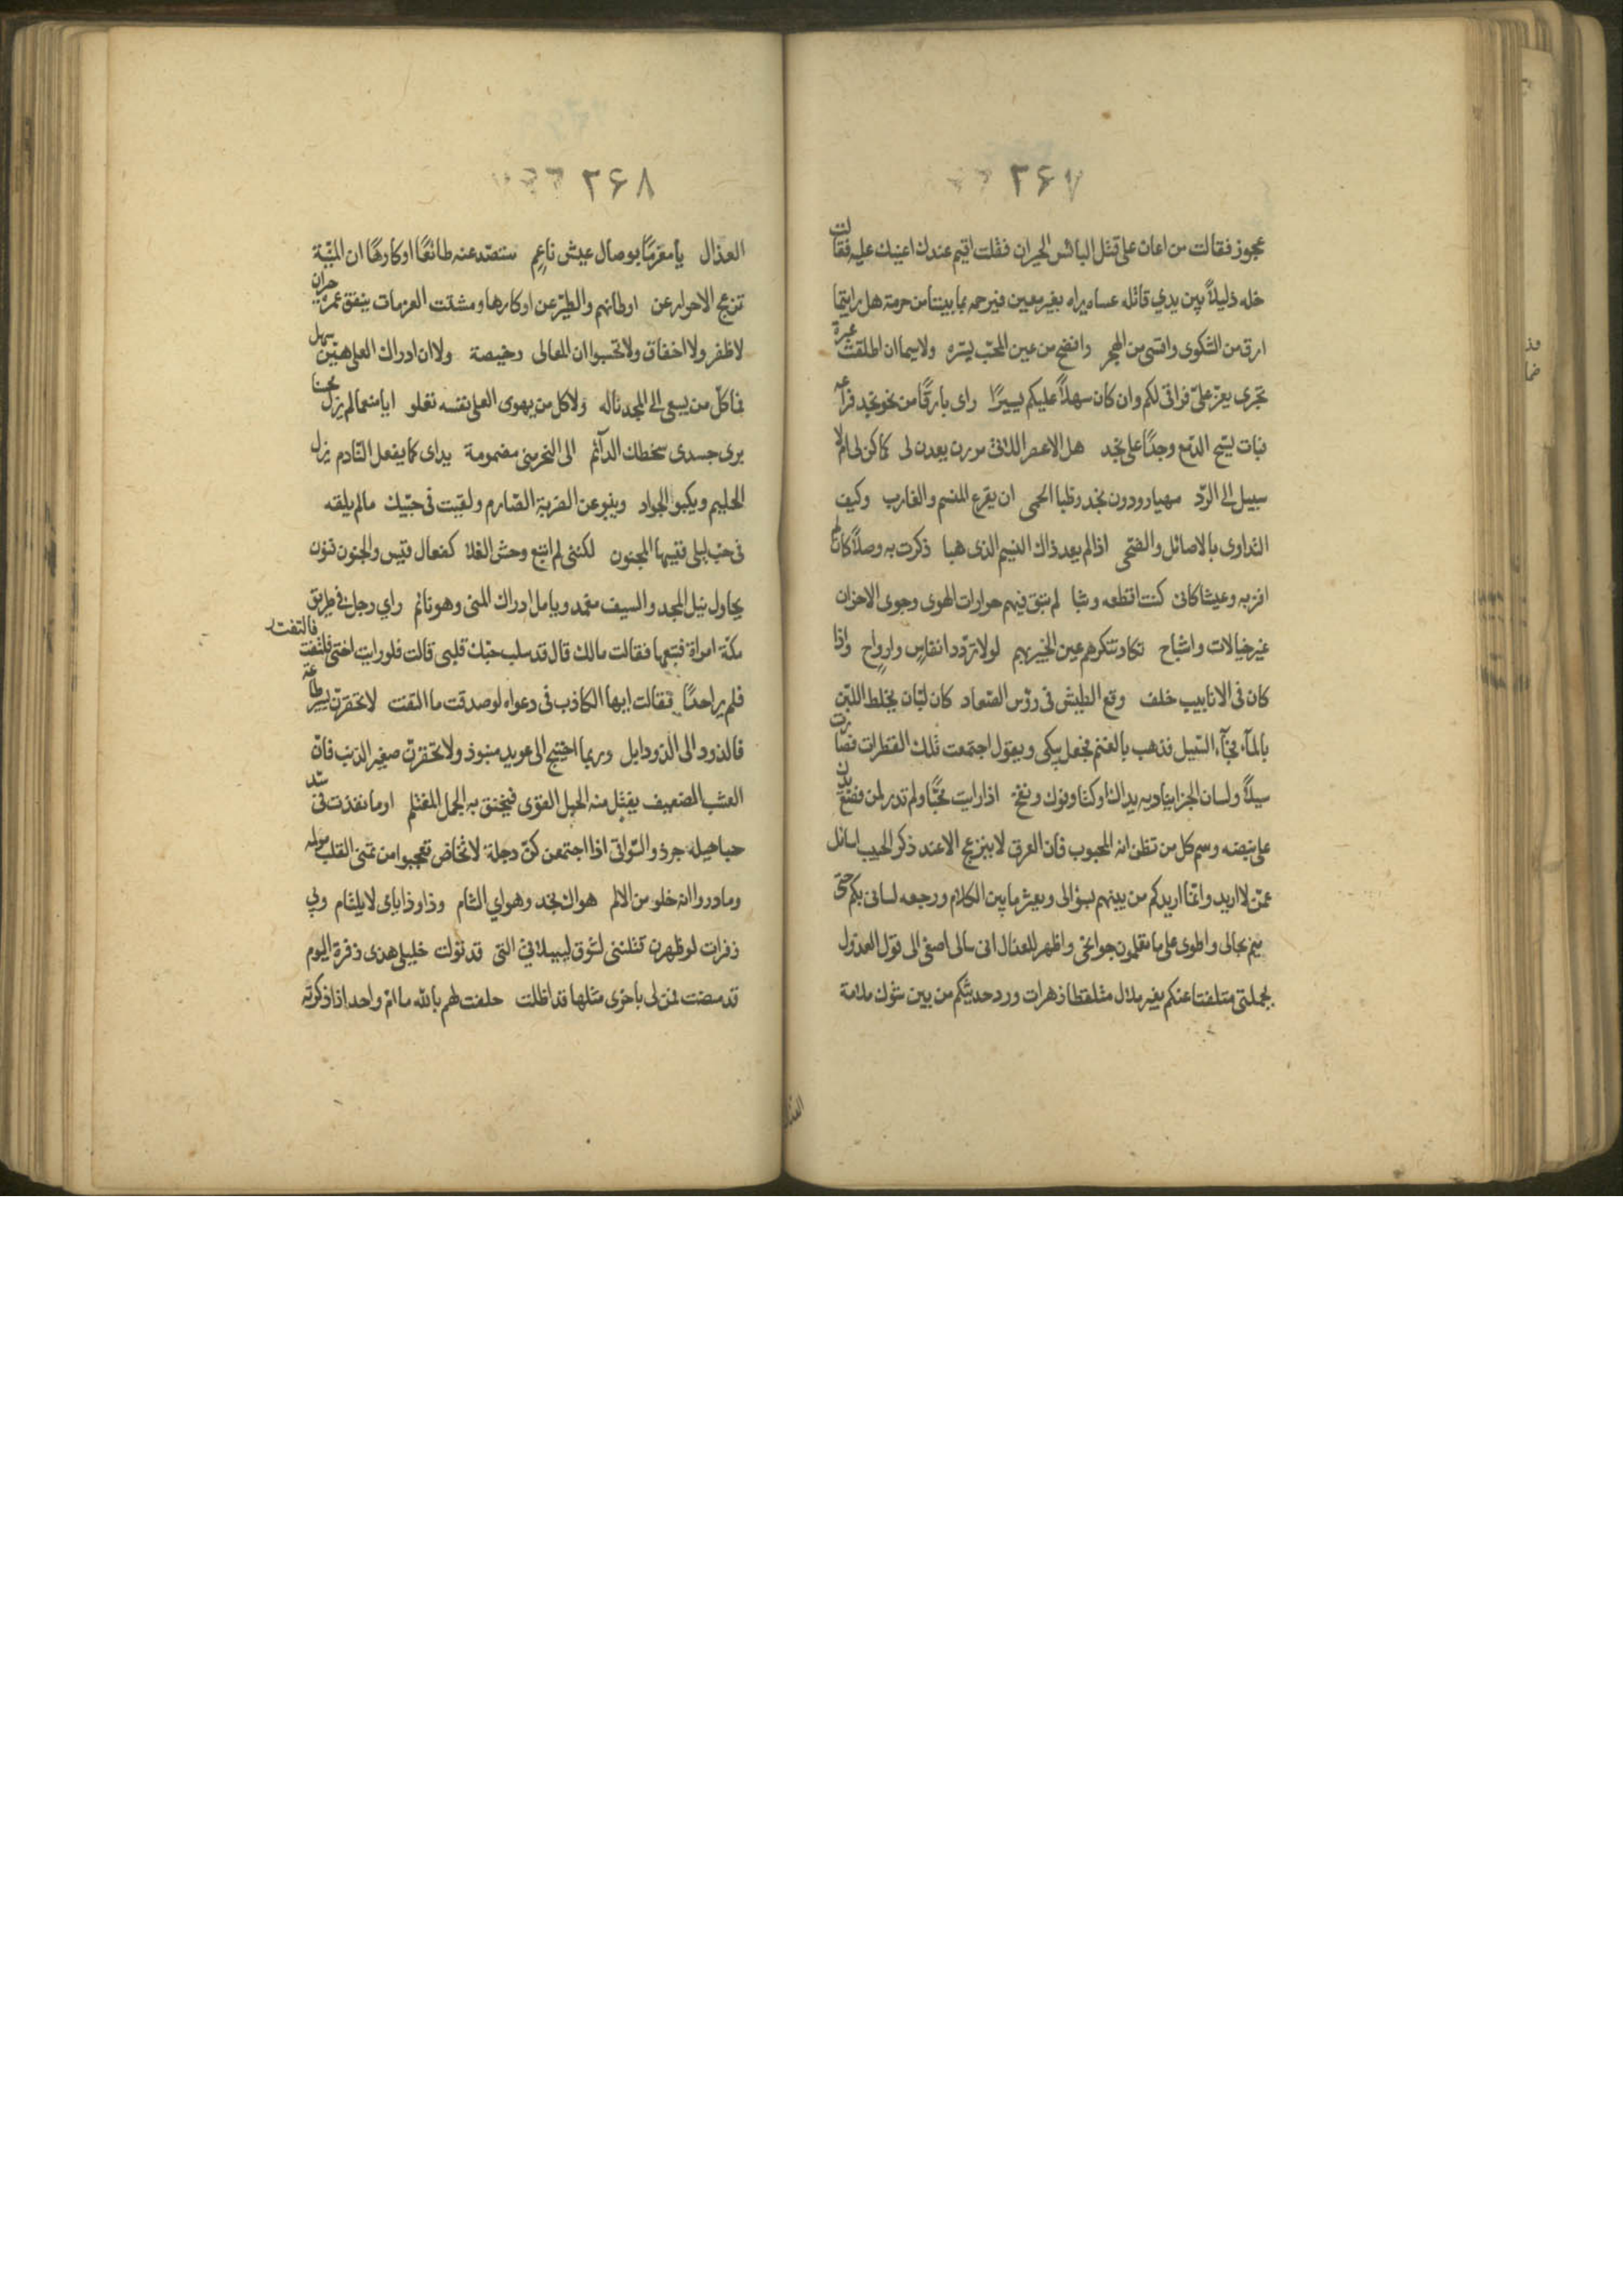 ٢۶٧
عجوز فقالت من اعان على قتل البائس الحيران فقلت اقيم عندك اعينك عليه فقالت
خله ذليلاً بين يدي قاتله عساه يراه بغير معين فيرحمه بما بيننا من حرمة هل رايتما
ارق من الشكوى واقسى من الهجر وافضح من عين المحبّ لسرّه ولا سيما ان اطلقت عبرة
تجرى يعزّ علىّ فراقى لكم وان كان سهلاً عليكم يسيرًا راى بارقًا من نحو نجد فراعه
فبات يسحّ الدّمع وجدًا على نجد هل الاعصر اللاتى مررن يعدن لى كما كنّ لى ام لا
سبيل الى الرّد مهيار ودون نجد وظبا الحمى ان يقرع المنسم والغارب وكيف
التداوى بالاصائل والضحى اذا لم يعد ذاك النسيم الذى هبا ذكرت به وصلاً كان لم
افز به وعيشا كانى كنت اقطعه وثبا لم تبق فيهم حرارات الهوى وجوى الاحزان
غير خيالات واشباح تكاد تنكرهم عين الخبير بهم لولا تردّد انفاس وارواح واذا
كان فى الانابيب خلف وقع الطيش فى رؤس الصّعاد كان لبّان يخلط اللبن
بالمآء فجآء السّيل فذهب بالغنم فجعل يبكى ويقول اجتمعت تلك القطرات فصارت
سيلاً ولسان الجزا يناديه يداك اوكتا وفوك ونفخ اذا رايت محبًّا ولم تدر لمن فضع يدك
على نبضه وسمّ كل من تظن انه المحبوب فان العرق لا ينزعج الا عند ذكر الحبيب اسائل
عمّن لا اريد وانّما اريدكم من بينهم بسؤالى ويعثر ما بين الكلام ورجعه لسانى بكم حتى
ينم بحالى واطوى على ما تعلمون جوانحى واظهر للعذال انى سالى اصغى الى قول العذول
بجملتى متلفتا عنكم بغير ملال متلقطا زهرات ورد حديثكم من بين شوك ملامة
العذال
٢۶٨
العذال يا مغرمًا بوصال عيش ناعم ستصدّ عنه طائعًا او كارهًا ان المنيّة
تزعج الاحرار عن اوطانهم والطير عن اوكارها ومشتت العزمات ينفق عمره حيران
لا ظفر ولا اخفاق ولا تحسبوا ان المعالى رخيصة ولا ان ادراك العلى هيّن سهل
فما كلّ من يسعى الى المجد ناله ولا كل من يهوى العلى نفسه تعلو ايا منعما لم يزل محسنا
برى جسدى سخطك الدآئم الى النحر منى مضمومة يداى كما يفعل النّادم يزل
الحليم ويكبو الجواد وينبو عن الضربة الصّارم ولقيت فى حبّيك مالم يلقه
فى حبّ ليلى قيسها المجنون لكننى لم اتبع وحش الفلا كفعال قيس والجنون فنون
يحاول نيل المجد والسيف مغمد ويامل ادراك المنى وهو نائم راي رجل في طريق
مكّة امراة فتبعها فقالت مالك قال قد سلب حبّك قلبى قالت فلو رايت اختى فالتفت
فلم ير احدًا فقالت ايها الكاذب فى دعواه لو صدقت ما التفت لا تحقرنّ يسير طاعة
فالذود الى الذود ابل وربما احتيج الى عويد منبوذ ولا تحقرنّ صغير الذنب فانّ
العشب الضعيف يفتل منه الحبل القوى فيختنق به الجمل المغتلم او ما نفذت فى سدّ
سبا حيلة جرذ والسّواقى اذا اجتمعن كنّ دجلة لا تخاض تعجبوا من تمنى القلب مولمه
وما دروا انه خلو من الالم هواك نجد وهواي الشام وذا وذا ياى لا يلتام ولي
زفرات لو ظهرن قتلننى لشوق لييلاتي التى قد تولت خليلى هذى زفرة اليوم
قد مضت فمن لى باخرى مثلها قد اظلت حلفت لهم بالله ما امّ واحد اذا ذكرته